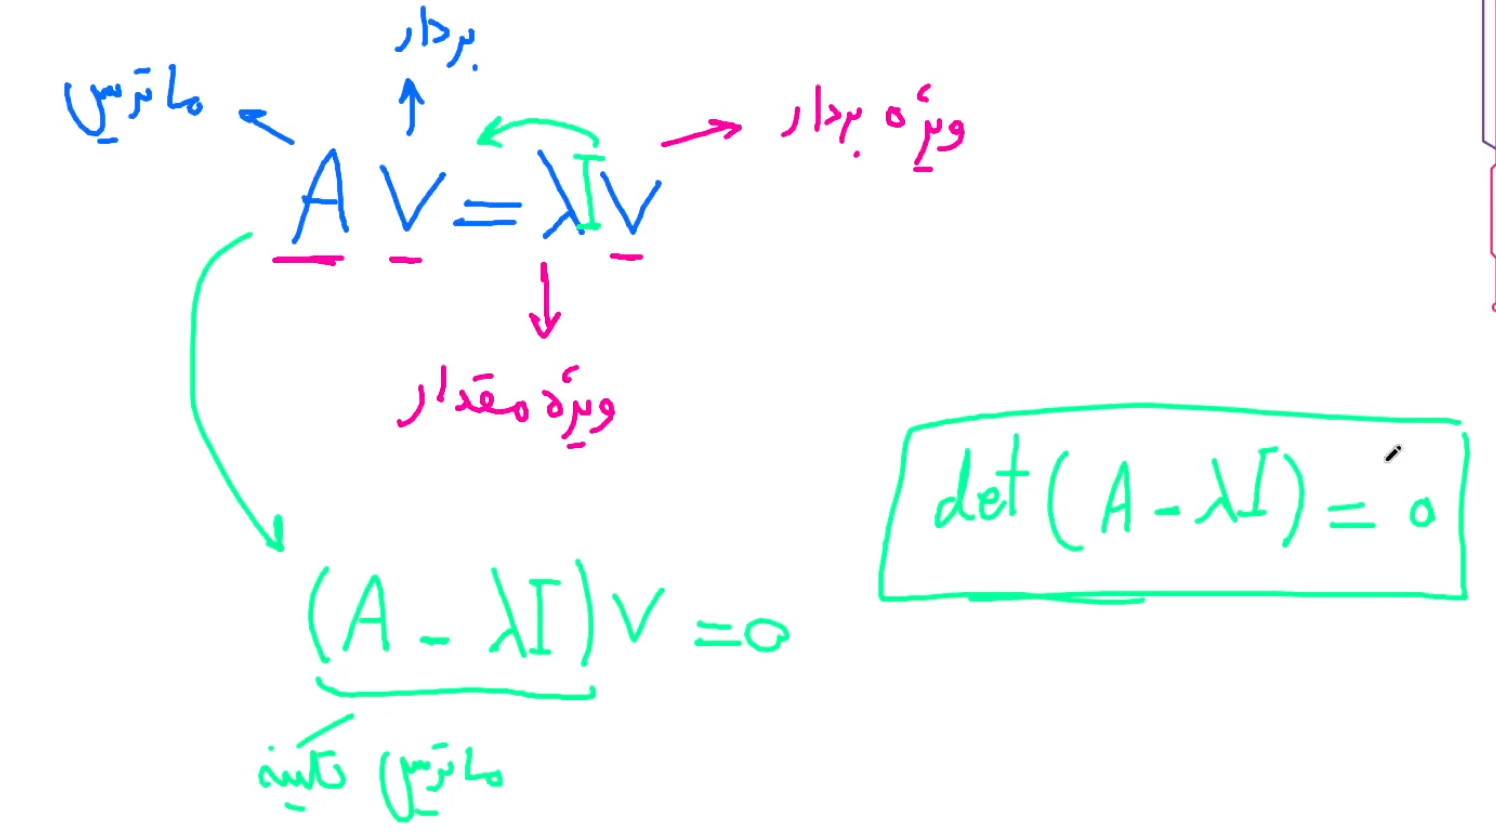 بردار
ماتریس
ویژه بردار
AV = λIV
ویژه مقدار
det(A - λI) = 0
(A - λI)V = 0
ماتریس تکینه